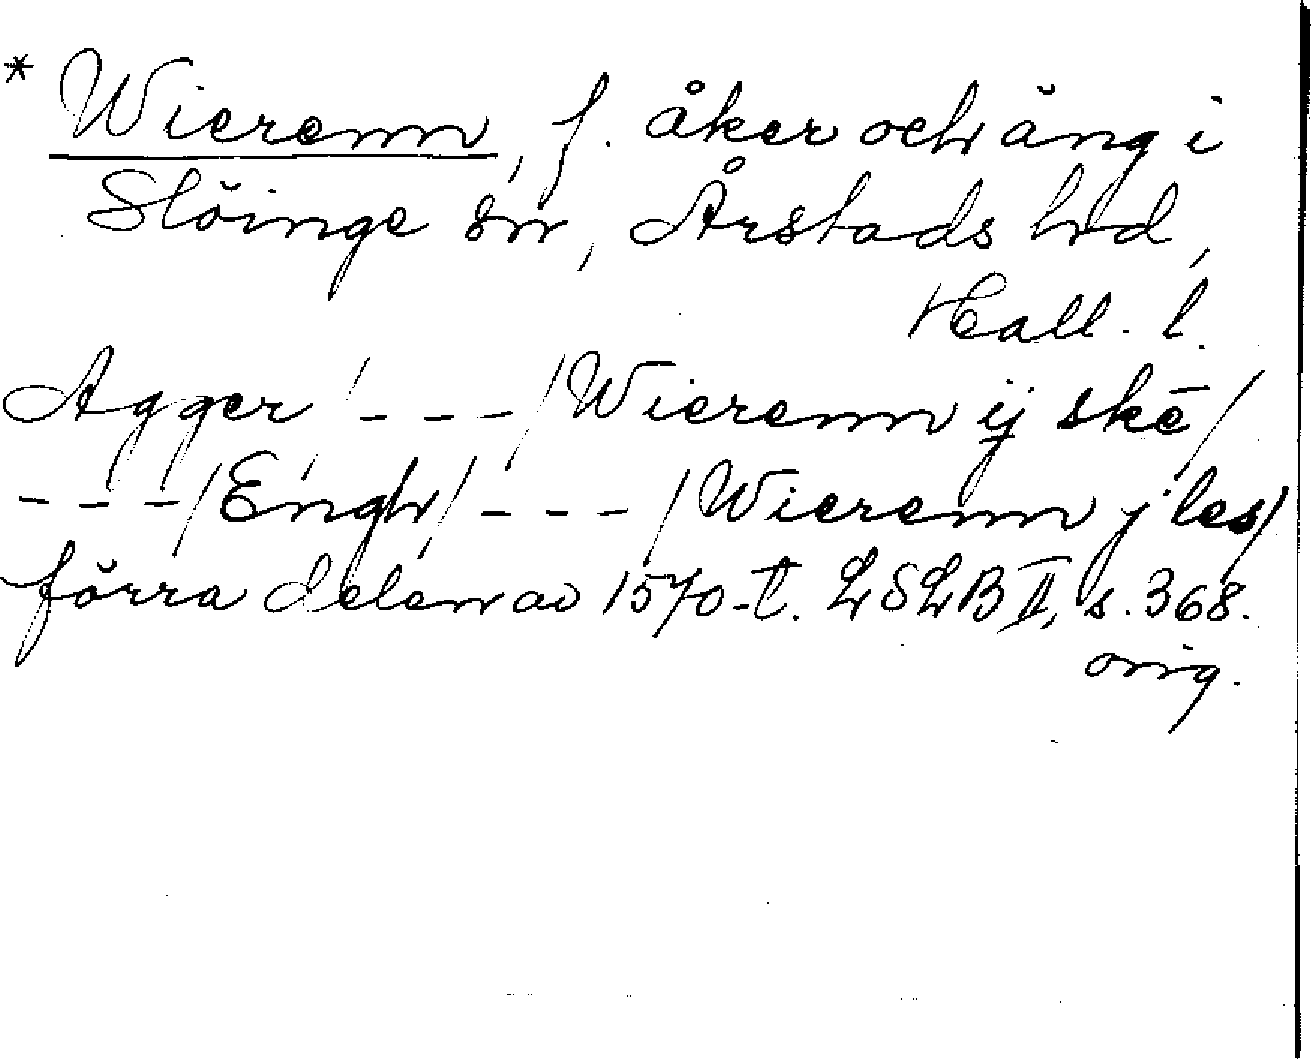 * Wierenn, f. åker och äng i
Slöinge sn, Årstads hd,
Hall. l.
Agger /---/ Wierenn ij skē/
---/ Engh /---/ Wierenn j les/
förra delen av 1570-t. LSLB II, s. 368.
orig.